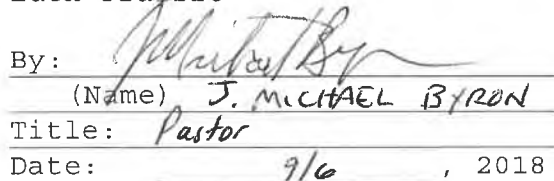 By:
(Name) J. MICHAEL BYRON
Title: Pastor
Date: 9/6, 2018